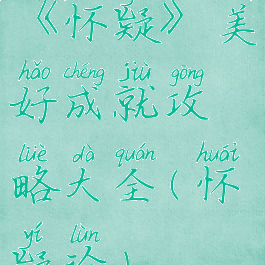 《怀疑》 美
hǎo chéng jiù gòng
好成就攻
lüè dà quán huái
略大全（怀
yí lùn
疑论）